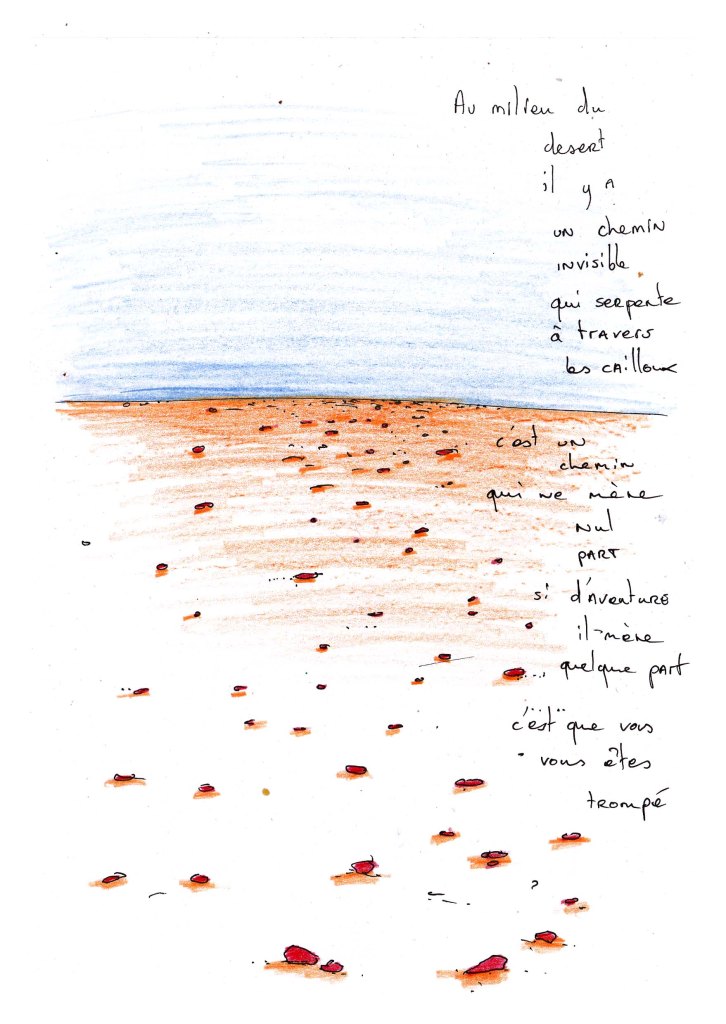 Au milieu du
desert
il y A
un chemin
invisible
qui serpente
à travers
les cailloux
c'est un
chemin
qui ne mène
Nul
PART
si d'Aventure
il mène
quelque part
c'est que vous
vous êtes
trompé